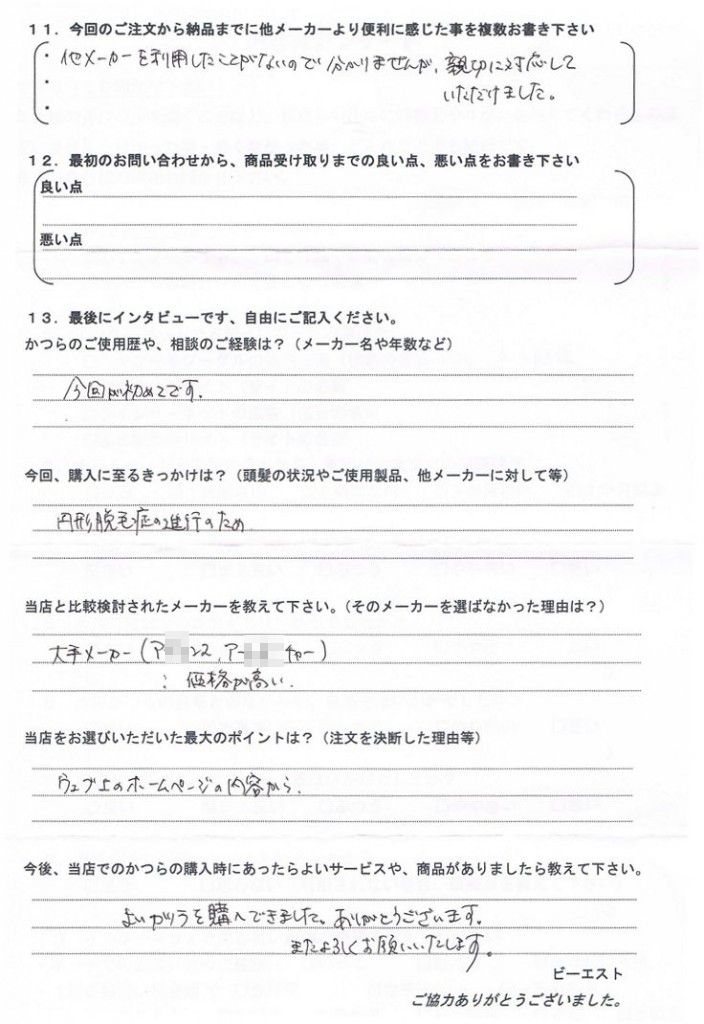 １１．今回のご注文から納品までに他メーカーより便利に感じた事を複数お書き下さい
・他メーカーを利用したことがないので分かりませんが、親切に対応して
・いただけました。
・
１２．最初のお問い合わせから、商品受け取りまでの良い点、悪い点をお書き下さい
良い点
悪い点
１３．最後にインタビューです、自由にご記入ください。
かつらのご使用歴や、相談のご経験は？（メーカー名や年数など）
今回が初めてです.
今回、購入に至るきっかけは？（頭髪の状況やご使用製品、他メーカーに対して等）
円形脱毛症の進行のため
当店と比較検討されたメーカーを教えて下さい。（そのメーカーを選ばなかった理由は？）
大手メーカー（ア ンス，アー チャー）
：価格が高い.
当店をお選びいただいた最大のポイントは？（注文を決断した理由等）
ウェブ上のホームページの内容から.
今後、当店でのかつらの購入時にあったらよいサービスや、商品がありましたら教えて下さい。
よいかつらを購入できました。ありがとうございます.
またよろしくお願いいたします。
ビーエスト
ご協力ありがとうございました。